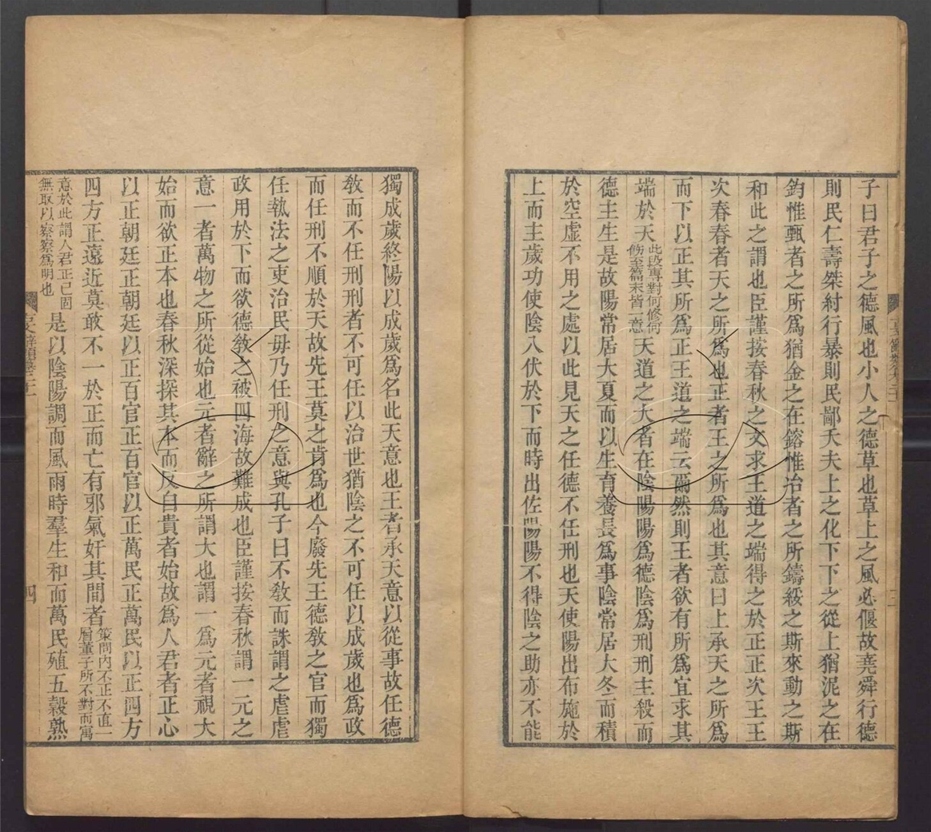 子曰君子之德風也小人之德草也草上之風必偃故堯舜行德
則民仁壽桀紂行暴則民鄙夭夫上之化下下之從上猶泥之在
鈞惟甄者之所爲猶金之在鎔惟冶者之所鑄綏之斯來動之斯
和此之謂也臣謹按春秋之文求王道之端得之於正正次王王
次春春者天之所爲也正者王之所爲也其意曰上承天之所爲
而下以正其所爲正王道之端云爾然則王者欲有所爲宜求其
端於天此段專對何修何飭至篇末皆一意天道之大者在陰陽陽爲德陰爲刑刑主殺而
德主生是故陽常居大夏而以生育養長爲事陰常居大冬而積
於空虛不用之處以此見天之任德不任刑也天使陽出布施於
上而主歲功使陰入伏於下而時出佐陽陽不得陰之助亦不能
獨成歲終陽以成歲爲名此天意也王者承天意以從事故任德
敎而不任刑刑者不可任以治世猶陰之不可任以成歲也爲政
而任刑不順於天故先王莫之肯爲也今廢先王德敎之官而獨
任執法之吏治民毋乃任刑之意與孔子曰不敎而誅謂之虐虐
政用於下而欲德敎之被四海故難成也臣謹按春秋謂一元之
意一者萬物之所從始也元者辭之所謂大也謂一爲元者視大
始而欲正本也春秋深探其本而反自貴者始故爲人君者正心
以正朝廷正朝廷以正百官正百官以正萬民正萬民以正四方
四方正遠近莫敢不一於正而亡有邪氣奸其間者策問內不正不直一層董子所不對而寓
意於此謂人君正己固無取以察察爲明也是以陰陽調而風雨時羣生和而萬民殖五穀熟
四